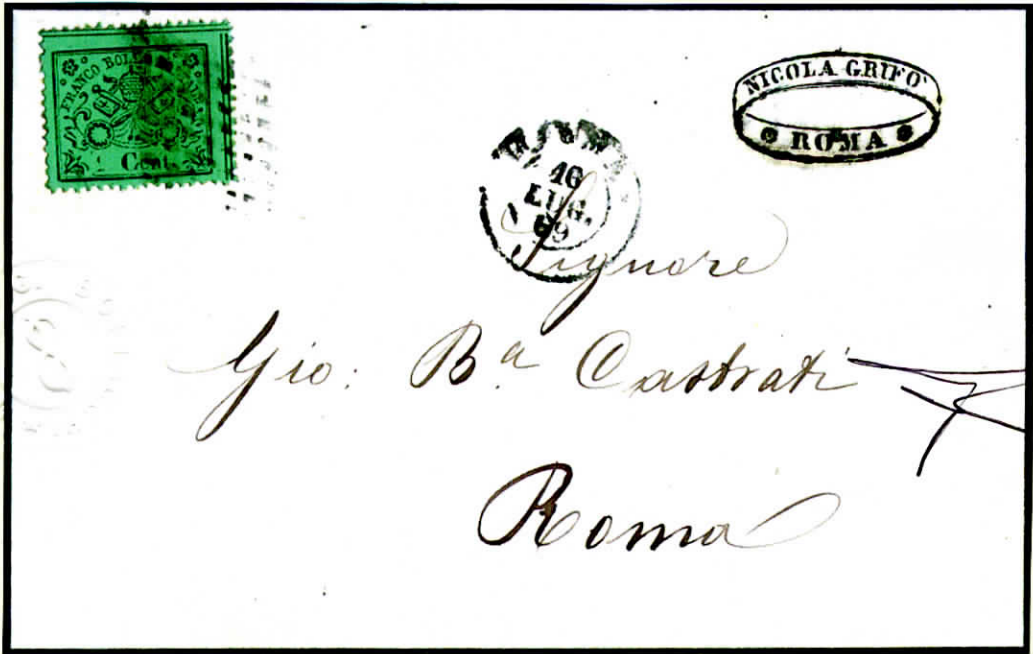 FRANCO BOLLO
Cent.
NICOLA GRIFO'
ROMA
ROMA
16
LUG.
69
Signore
Gio: Bª Castrati
Roma